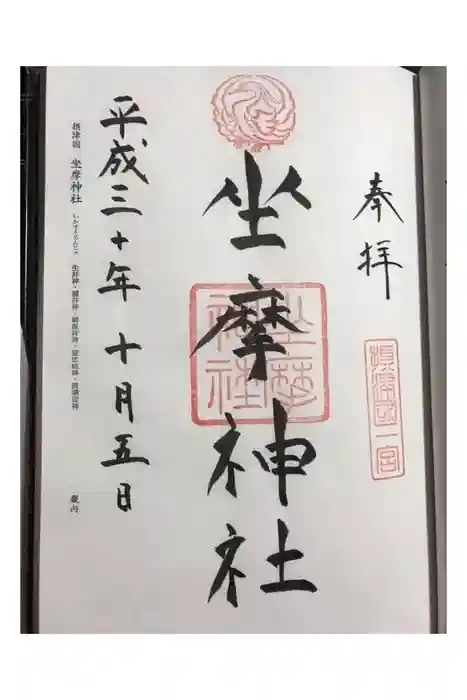 奉拝
摂津国一宮
坐摩神社
坐摩神社
平成三十年十月五日
摂津国 坐摩神社 いかすりじんじゃ 生井神・福井神・綱長井神・波比岐神・阿須波神